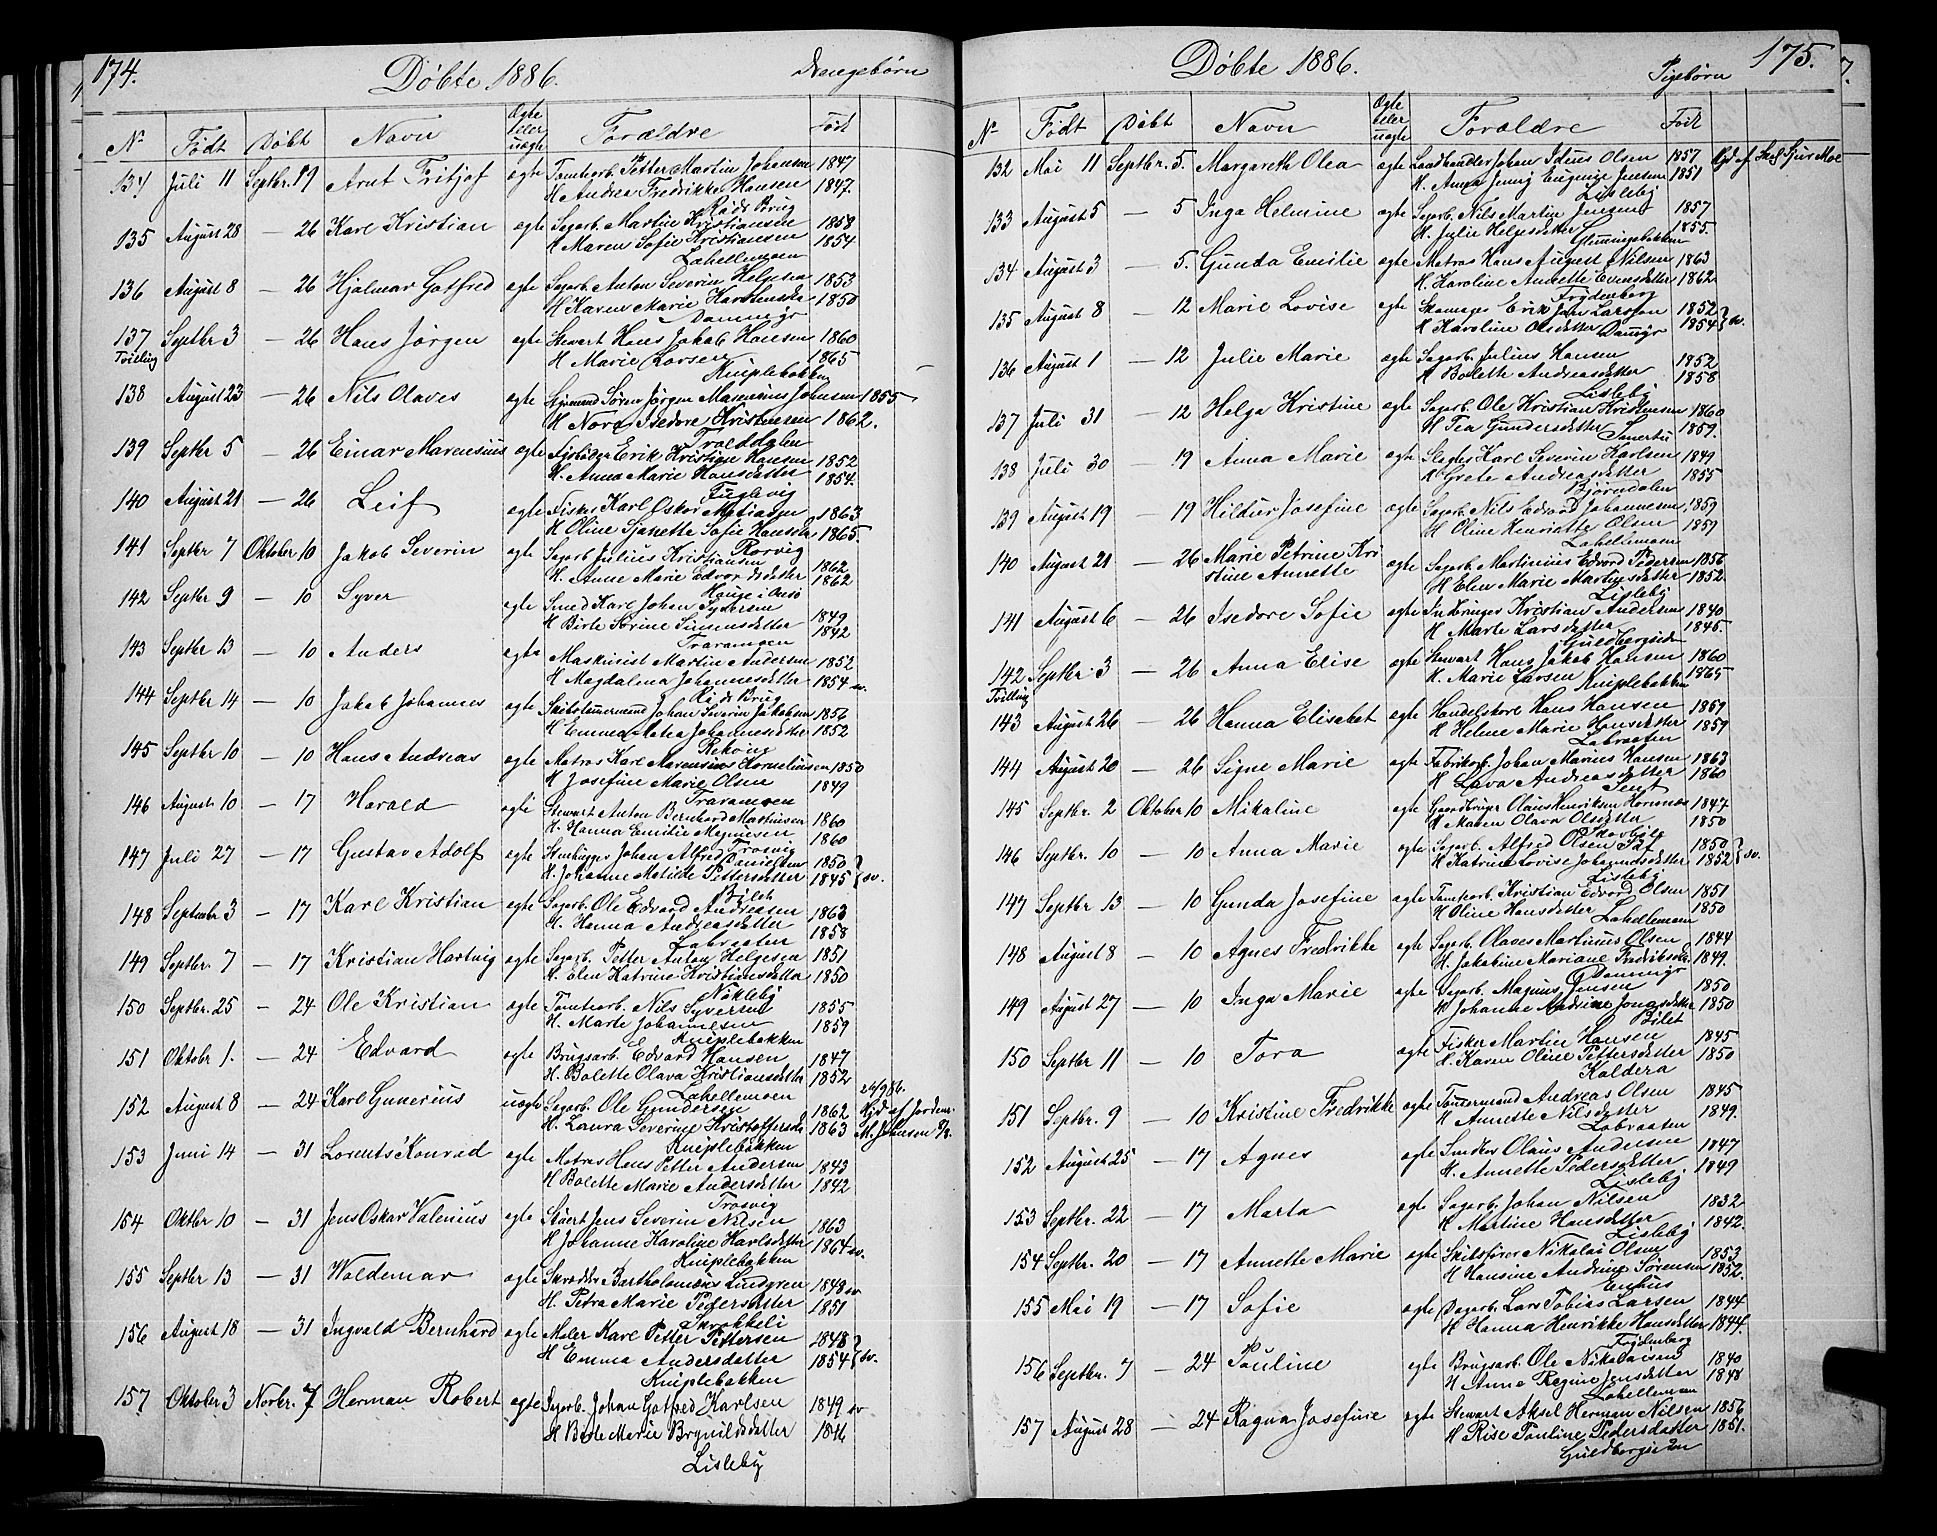 174.
Döbte 1886.
Drengebörn
No Födt Döbt Navn Ægte eller uægte Forældre Födt
134 Juli 11 Septbr. 19 Arnt Fritjof ægte Tomtearb. Petter Martin Johansen 1847
H. Andrea Fredrikke Hansen 1847.
Röds Brug
135 August 28 — 26 Karl Kristian ægte Sagarb. Martin Kristiansen 1858
H Maren Sofie Kristiansen 1854
Lahellemoen
136 August 8 — 26 Hjalmar Gotfred ægte Sagarb. Anton Severin Helgesen 1853
H Karen Marie 1850
Dammyr
137 Septbr 3 — 26 Hans Jörgen ægte Stewart Hans Jakob Hansen 1860
Tvilling H Marie Larsen 1865
Kniplebakken
138 August 23 — 26 Nils Olaves ægte Styrmand Sören Jörgen Marenius Johnsen 1855
H Nora Isedore Kristensen 1862.
Troelddalen
139 Septbr 5 — 26 Einar Marensius ægte Erik Kristian Hansen 1852
H. Anna Marie Hansdatter 1854.
Fuglevig
140 August 21 — 26 Leif ægte Fisker Karl Oskar Matiasen 1863
H Oline Sjanette Sofie Hansdtr 1865.
Rorvig
141 Septbr 7 Oktober 10 Jakob Severin ægte Sagarb Julius Kristiansen 1862
H. Anne Marie Edvardsdatter 1862
Hauge i Onsö
142 Septbr 9 — 10 Syver ægte Smed Karl Johan Syversen 1849
H Birte Sorine Simensdatter 1842
Traramoen
143 Septbr 13 — 10 Anders ægte Maskinist Martin Andersen 1852
H Magdalena Johannesdatter 1854 sv.
Röds Brug
144 Septbr 14 — 10 Jakob Johannes ægte Skibstømmermand Johan Severin Jakobsen 1856
H Emma Matea Johannesdatter 1852
145 Septbr 10 — 10 Hans Andreas ægte Matros Karl Marensius Kornelíusen 1850
H Josefine Marie Olsen 1849
Traramoen
146 August 10 — 17 Harald ægte Stewart Anton Bernhard Martinsen 1860
H. Hanna Emilie Magnusen 1860
Trosvig
147 Juli 27 — 17 Gustav Adolf ægte Stenhugger Johan Alfred Danielsen 1850
H. Johanne Matilde Pettersdatter 1845 } sv.
148 September 3 — 17 Karl Kristian ægte Sagarb. Ole Edvard Andreasen 1863
H. Hanna Andreasdatter 1858
Labraaten
149 Septbr. 7 — 17 Kristian Hartvig ægte Sagarb. Petter Anton Helgesen 1851
H. Elen Katrine Kristiansdatter 1850
Nöklebÿ
150 Septbr. 25 — 24 Ole Kristian ægte Tomtearb. Nils Syversen 1855
H. Marte Johannesen 1859
Kniplebakken
151 Oktobr 1. — 24 Edvard ægte Brugsarb. Edvard Hansen 1847
H. Bolette Olava Kristiansdatter 1852
Lahellemoen
152 August 8 — 24 Karl Gunerius uægte Sagarb. Ole Gundersen 1862 24/9 86.
H. Laura Severine Kristoffersdtr 1863 Gjd af Jordem. M. Johnsen
Kniplebakken
153 Juni 14 — 31 Lorents Konrad ægte Matros Hans Petter Andersen 1843
H Bolette Marie Andersdatter 1842
Trosvig
154 Oktbr 10 — 31 Jens Oskar Valenius ægte Stuert Jens Severin Nilsen 1863
H Johanne Karoline Karlsdatter 1864 sv.
Kniplebakken
155 Septbr 13 — 31 Waldemar ægte Skrædder Bartholomæus Lindgren 1848 sv
H. Petra Marie Pedersdatter 1851
156 August 18 — 31 Ingvald Bernhard ægte Maler Karl Petter Pettersen 1848
H Emma Andersdatter 1854 } sv.
Kniplebakken
157 Oktober 3 Novbr. 7 Herman Robert ægte Sagarb. Johan Gotfred Karlsen 1849 sv
H Birte Marie Brynildsdatter 1846
Lisleby
175.
Döbte 1886.
Pigebörn
No Födt Döbt Navn Ægte eller uægte Forældre Födt
132 Mai 11 Septbr. 5. Margareth Olea ægte Landhandler Johan Ideus Olsen 1857
H. Anna Jenny Eugenie Jensen 1851
Lisleby
133 August 5 — 5 Inga Helmine ægte Sagarb. Nils Martin Jensen 1857
H. Julie Helgesdatter 1855.
134 August 3 — 5. Gunda Emilie ægte Matros Hans August Nilsen 1863
H. Karoline Annette Evensdatter 1862
Frydenberg
135 August 8 — 12 Marie Lovise ægte Skomager Erik Johs Larsson 1852
H Karoline Olsdatter Damyr 1854 } sv.
136 August 1 — 12 Julie Marie ægte Sagarb. Julius Hansen 1852
H Bolette Andreasdatter 1858
Lisleby
137 Juli 31 — 12 Helga Kristine ægte Sagarb. Ole Kristian Kristensen 1860
H Tea Gundersdatter 1859.
138 Juli 30 — 19 Anna Marie ægte Karl Severin Karlsen 1849
H Grete Andreasdatter 1855
Björndalen
139 August 19 — 19 Hildur Josefine ægte Sagarb Nils Edvard Johannesen 1859
H Oline Henriette Olsen 1859
Lahellemoen
140 August 21 — 26 Marie Petrine Kri ægte Sagarb. Martinius Edvard Pedersen 1856
stine Annette H Elen Marie Martinsdatter 1852
Lisleby
141 August 6 — 26 Isedore Sofie ægte Kristian Andersen 1840
H Marte Larsdatter 1845.
Guldbergsiden
142 Septbr. 3 — 26 Anna Elise ægte Stewart Hans Jakob Hansen 1860
Tvilling H. Marie Larsen Kniplebakken 1865
143 August 26 — 26 Hanna Elisabet ægte Handelskore Hans Hansen 1859
H Helene Marie Hansdatter 1859
Labraaten
144 August 20 — 26 Signe Marie ægte Fabrikarb. Johan Marius Hansen 1863
H Lava Andreasdatter 1860
145 Septbr. 2 Oktober 10 Mikaline ægte Gaardbruger Olaus Henriksen 1847
H Maren Olava Olsdatter 1850
146 Septbr. 10 — 10 Anna Marie ægte Sagarb. Alfred Olsen 1850
H Katrine Lovise Johannesdatter 1852 } sv.
Lisleby
147 Septbr 13 — 10 Gunda Josefine ægte Tomtearb. Kristian Edvard Olsen 1851
H Oline Hansdatter Lahellemoen 1850
148 August 8 — 10 Agnes Fredrikke ægte Sagarb. Olaves Martinius Olsen 1844
H. Jakobine Mariane Fredriksdtr 1849.
Dammyr
149 August 27 — 10 Inga Marie ægte Sagarb. Magnus Jensen 1850
H Johanne Andrine Jonasdatter 1850
Bilet
150 Septbr 11 — 10 Tora ægte Fisker Martin Hansen 1845
H. Karen Oline Pettersdatter 1850
Kaldera
151 Septbr. 9 — 10 Kristine Fredrikke ægte Tömmermand Andreas Olsen 1845
H Annette Nilsdatter 1849.
Labraaten
152 August 25 — 17 Agnes ægte Olaus Andersen 1847
H. Annette Pedersdatter 1849
Lisleby
153 Septbr. 22 — 17 Marta ægte Sagarb. Johan Nilsen 1832
H Martine Hansdatter 1842.
Lisleby
154 Septbr. 20 — 17 Annette Marie ægte Skibsförer Nikolai Olsen 1853
H Hansine Andrine Sörensen 1852.
Enhus
155 Mai 19 — 17 Sofie ægte Dagarb. Lars Tobias Larsen 1844
H Hanna Henrikke Hansdatter 1844.
Frydenberg
156 Septbr. 7 — 24 Pauline ægte Brugsarb. Ole Nikolaisen 1840
H Anne Regine Jensdatter 1848
Lahellemoen
157 August 28 — 24 Ragna Josefine ægte Stewart Aksel Herman Nilsen 1856
H Rise Pauline Pedersdatter 1851.
Guldbergsiden